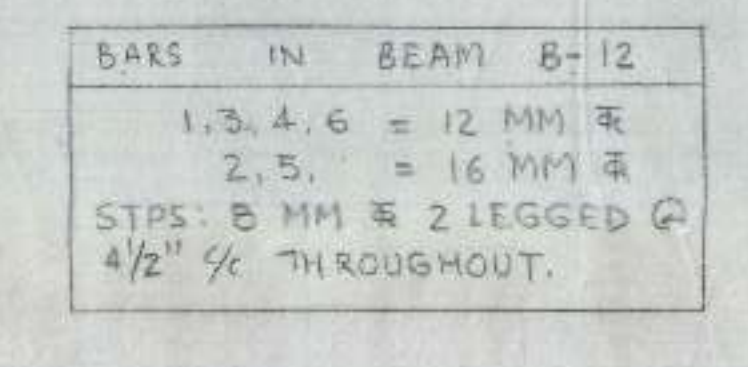 BARS IN BEAM B-12
1,3,4,6 = 12 MM
2,5, = 16 MM
STPS: 8 MM 2 LEGGED @
4 1/2" c/c THROUGHOUT.